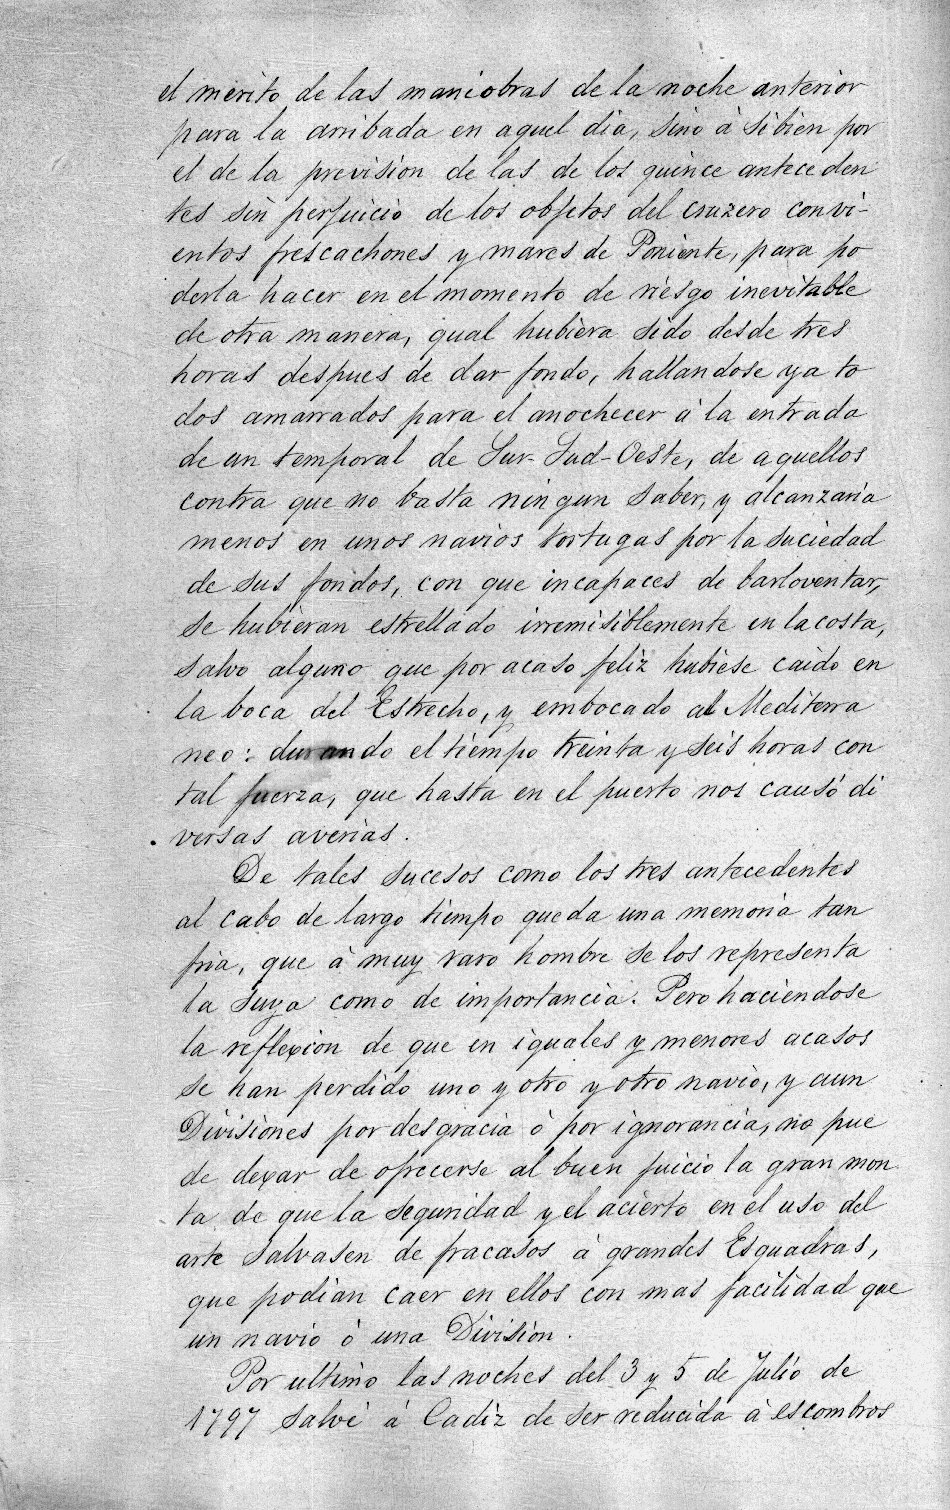 el mérito de las maniobras de la noche anterior
para la arribada en aquel dia, sino á sibien por
el de la prevision de las de los quince anteceden
tes sin perjuicio de los objetos del cruzero con vi-
entos frescachones y mares de Poniente, para po
derla hacer en el momento de riesgo inevitable
de otra manera, qual hubiera sido desde tres
horas despues de dar fondo, hallandose ya to
dos amarrados para el anochecer á la entrada
de un temporal de Sur-Sud-Oeste, de aquellos
contra que no basta ningun saber, y alcanzaria
menos en unos navios tortugas por la suciedad
de sus fondos, con que incapaces de barloventar,
se hubieran estrellado irremisiblemente en la costa,
salvo alguno que por acaso feliz hubiese caido en
la boca del Estrecho, y embocado al Mediterra
neo: durando el tiempo treinta y seis horas con
tal fuerza, que hasta en el puerto nos causó di
versas averias.
De tales sucesos como los tres antecedentes
al cabo de largo tiempo queda una memoria tan
fria, que á muy raro hombre se los representa
la suya como de importancia. Pero haciendose
la reflexion de que en iguales y menores acasos
se han perdido uno y otro y otro navio, y aun
Divisiones por desgracia ó por ignorancia, no pue
de dexar de ofrecerse al buen juicio la gran mon
ta de que la seguridad y el acierto en el uso del
arte salvasen de fracasos á grandes Esquadras,
que podian caer en ellos con mas facilidad que
un navio ó una Division.
Por ultimo las noches del 3 y 5 de Julio de
1797 salvé á Cadiz de ser reducida á escombros